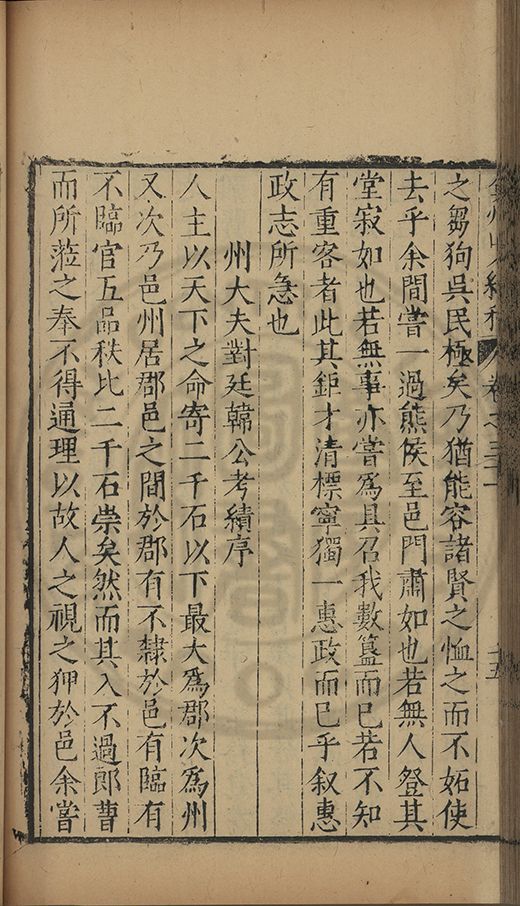 卷之三十
十五
之芻狗吳民極矣乃猶能容諸賢之恤之而不妬使
去乎余間嘗一過熊侯至邑門肅如也若無人登其
堂寂如也若無事亦嘗爲具召我數簋而已若不知
有重客者此其鉅才清標寧獨一惠政而已乎叙惠
政志所急也
州大夫對廷韓公考績序
人主以天下之命寄二千石以下最大爲郡次爲州
又次乃邑州居郡邑之間於郡有不隸於邑有臨有
不臨官五品秩比二千石崇矣然而其入不過郎曹
而所蒞之奉不得通理以故人之視之狎於邑余嘗